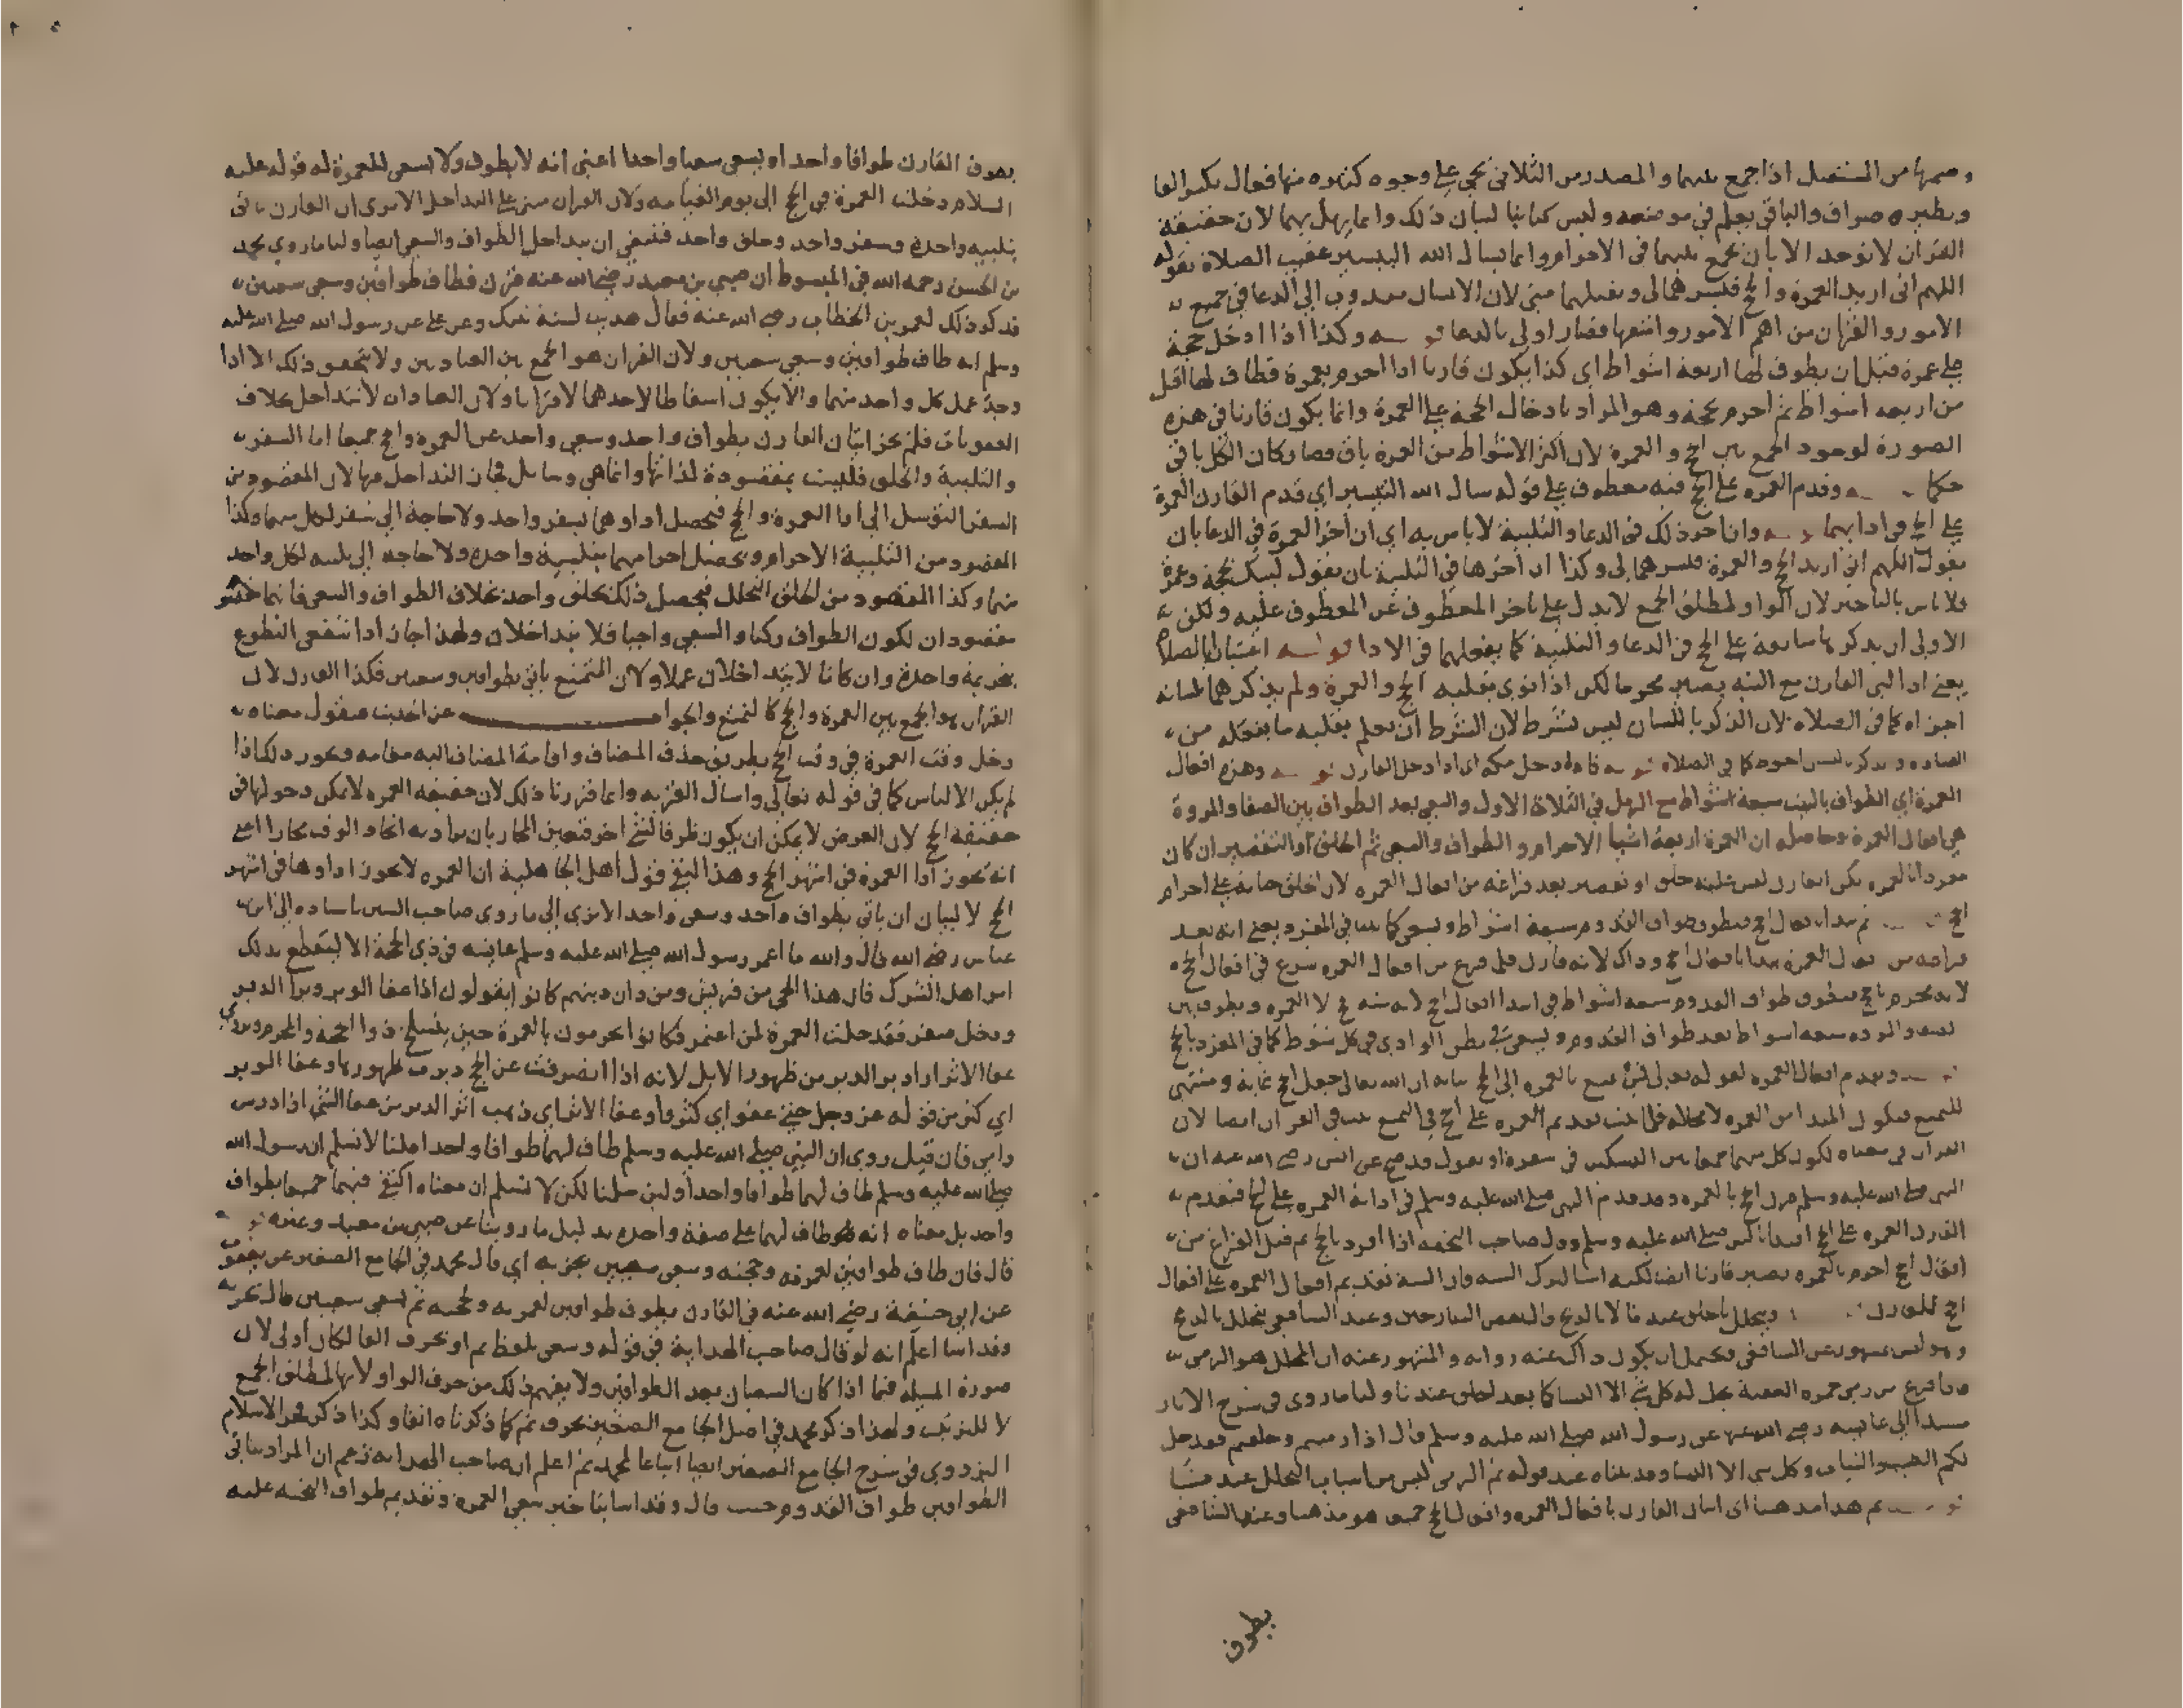 وضمها من المستقبل اذا جمع بينهما والمصدر من الثلاثي يجي على وجوه كثيره منها فعال بكسر الفا
ونظيره صواف والباقي يعلم في موضعه وليس كتابنا لبيان ذلك وانما يهل بهما لان حقيقة
القران لا توجد الا بان يجمع بينهما في الاحرام وانما يسال الله التيسير عقيب الصلاة بقوله
اللهم اني اريد العمرة والحج فيسرهما لي وتقبلهما مني لان الانسان مندوب الى الدعا في جميع
الامور والقران من اهم الامور واتعبها فصار اولى بالدعا قوله وكذا اذا ادخل حجة
على عمرة قبل ان يطوف لها اربعة اشواط اي كذا يكون قارنا اذا احرم بعمرة فطاف لها اقل
من اربعه اشواط ثم احرم بحجة وهو المراد بادخال الحجة على العمرة وانما يكون قارنا في هذه
الصورة لوجود الجمع بين الحج والعمرة لان اكثر الاشواط من العمرة باق فصار كان الكل باقي
حكما وقدم العمره على الحج فيه معطوف على قوله سال الله التيسير اي قدم القارن العمرة
على الحج في ادايهما قوله وان اخر ذلك في الدعا والتلبية لا باس به اي ان اخر العمرة في الدعا بان
يقول اللهم اني اريد الحج والعمرة فيسرهما لي وكذا ان اخرها في التلبية بان يقول لبيك بحجة وعمرة
فلا باس بالتاخير لان الواو لمطلق الجمع لا يدل على تاخر المعطوف عن المعطوف عليه ولكن
الاولى ان يذكرها سابقة على الحج في الدعا والتلبية كما يفعلهما في الادا قوله اعتبارا بالصلاة
يعني اذا لبى القارن مع النيه يصير محرما لكن اذا نوى بقلبه الحج والعمرة ولم يذكرهما بلسانه
اجزاه كما في الصلاه لان الذكر باللسان ليس بشرط لان الشرط ان يعلم بقلبه ما يفعله من
العباده ويذكر بلسانه احوط كما في الصلاه قوله فاذا دخل مكه اي اذا دخل القارن قوله وهذه افعال
العمرة اي الطواف بالبيت سبعة اشواط مع الرمل في الثلاثة الاول والسعي بعد الطواف بين الصفا والمروة
هي افعال العمرة وحاصله ان العمرة اربعة اشيا الاحرام والطواف والسعي ثم الحلق او التقصير ان كان
مفردا بالعمره لكن القارن ليس عليه حلق او تقصير بعد فراغه من افعال العمره لان الحلق جناية على احرام
الحج ثم يبدا بافعال الحج فيطوف طواف القدوم سبعة اشواط ويسعى كما بينا في المفرد يعني انه بعد
فراغه من افعال العمرة يبدا بافعال الحج وذاك لانه قارن فلما فرغ من افعال العمره شرع في افعال الحج
لانه محرم بالحج فيطوف طواف القدوم سبعه اشواط في ابتدا افعال الحج لانه سنة الحج لا العمره ويطوف بين
الصفا والمروه سبعه اشواط بعد طواف القدوم ويسعى في بطن الوادي في كل شوط كما في المفرد بالحج
ويقدم افعال العمره لقوله تعالى فمن تمتع بالعمره الى الحج بيانه ان الله تعالى جعل الحج غاية ومنتهى
للتمتع فيكون المبدا من العمره لا محاله فلما ثبت تقديم العمره على الحج في التمتع ثبت في القران ايضا لان
القران في معناه لكون كل منهما جمعا بين النسكين في سفرة او نقول قد صح عن انس رضي الله عنه ان
النبي صلى الله عليه وسلم قرن الحج بالعمره وقد قدم النبي صلى الله عليه وسلم في ادائه العمره على الحج فيقدم
القارن العمره على الحج اقتدا بالنبي صلى الله عليه وسلم وقال صاحب التحفه اذا افرد بالحج ثم قبل الفراغ من
افعال الحج احرم بالعمره يصير قارنا ايضا لكنه اسا لترك السنه فان السنه تقديم افعال العمره على افعال
الحج للقارن ويتحلل بالحلق عندنا لا بالذبح والتقصير النذارحين وعند الشافعي يتحلل بالذبح
وهو ليس بمشهور عن الشافعي فيحتمل ان يكون ذاك عنه رواية والمشهور عنه ان المحلل هو الرمي
فاذا فرغ من رمي جمره العقبة يحل له كل شي الا النسا كما بعد الحلق عندنا ولنا ما روي في شرح الاثار
مسندا الى عايشه رضي الله عنها عن رسول الله صلى الله عليه وسلم قال اذا رميتم وحلقتم فقد حل
لكم الطيب والثياب وكل شي الا النسا وقد بيناه عند قوله ثم الرمي ليس من اسباب التحلل عندنا
قوله ثم هذا مذهبنا اي اتيان القارن بافعال العمره وافعال الحج جميعا هو مذهبنا وعند الشافعي
يطوف
يطوف القارن طوافا واحدا ويسعى سعيا واحدا اعني انه لا يطوف ولا يسعى للعمرة له قوله عليه
السلام دخلت العمرة في الحج الى يوم القيامه ولان القران مبني على التداخل الا ترى ان القارن ياتي
بتلبيه واحدة وسفر واحد وحلق واحد فينبغي ان يتداخل الطواف والسعي ايضا ولنا ما روي محمد
بن الحسن رحمه الله في المبسوط ان صبي بن معبد رضي الله عنه قرن فطاف طوافين وسعى سعيين
فذكر ذلك لعمر بن الخطاب رضي الله عنه فقال هديت لسنة نبيك وعن علي عن رسول الله صلى الله عليه
وسلم انه طاف طوافين وسعى سعيين ولان القران هو الجمع بين العبادتين ولا يتحقق ذلك الا اذا
وجد عمل كل واحد منهما والا يكون اسقاطا لاحدهما لا قرانا ولان العبادات لا تتداخل بخلاف
العقوبات فلم يجز اتيان القارن بطواف واحد وسعي واحد عن العمرة والحج جميعا اما السفر
والتلبية والحلق فليست بمقصودة لذاتها وانما هي وسائل فجاز التداخل فيها لان المقصود من
السفر التوسل الى ادا العمرة والحج فيحصل اداوهما بسفر واحد ولا حاجة الى سفر لكل منهما وكذا
المقصود من التلبية الاحرام ويحصل احرامهما بتلبية واحدة ولا حاجه الى تلبيه لكل واحد
منهما وكذا المقصود من الحلق التحلل فيحصل ذلك بحلق واحد بخلاف الطواف والسعي فانهما
مقصودان لكون الطواف ركنا والسعي واجبا فلا يتداخلان ولهذا جاز ادا شفعي التطوع
بتحريمة واحدة وان كانا لا يتداخلان عملا ولان المتمتع ياتي بطوافين وسعيين فكذا القارن لان
القران هو الجمع بين العمرة والحج كالتمتع والجواب عن الحديث فنقول معناه
دخل وقت العمرة في وقت الحج بطريق حذف المضاف واقامة المضاف اليه مقامه ويجوز ذلك اذا
لم يكن الالباس كما في قوله تعالى واسال القريه وانما قررنا ذلك لان حقيقه العمره لا يمكن دخولها في
حقيقة الحج لان العرض لا يمكن ان يكون ظرفا لشي اخر فتعين المجاز بان يراد به اتحاد الوقت مجازا اعني
انه يجوز ادا العمرة في اشهر الحج وهذا لنفي قول اهل الجاهلية ان العمره لا يجوز اداوها في اشهر
الحج لا لبيان ان ياتي بطواف واحد وسعي واحد الا ترى الى ما روى صاحب السنن باسناده الى ابن
عباس رضي الله قال والله ما اعمر رسول الله صلى الله عليه وسلم عايشه في ذي الحجة الا ليقطع بذلك
امر اهل الشرك فان هذا الحي من قريش ومن دان دينهم كانوا يقولون اذا عفا الوبر وبرا الدبر
ودخل صفر فقد حلت العمرة لمن اعتمر فكانوا يحرمون بالعمرة حتى ينسلخ ذوا الحجة والمحرم ومعنى
عفا الاثر اراد بر الدبر من ظهور الابل لانه اذا انصرفت عن الحج دبرت ظهورها وعفا الوبر
اي كثر من قوله عز وجل حتى عفوا اي كثروا وعفا الاثر اي ذهب اثر الدبر من عفا الشي اذا درس
وامحى فان قيل روي ان النبي صلى الله عليه وسلم طاف لهما طوافا واحدا قلنا لا نسلم ان رسول الله
صلى الله عليه وسلم طاف لهما طوافا واحدا ولين سلمنا لكن لا نسلم ان معناه اكتفى فيهما جميعا بطواف
واحد بل معناه انه طاف لهما على صفة واحدة بدليل ما روينا عن صبي بن معبد وغيره قوله
قال فان طاف طوافين لعمرته وحجته وسعى سعيين يجزيه اي قال محمد في الجامع الصغير عن يعقوب
عن ابي حنيفة رضي الله عنه في القارن يطوف طوافين لعمرته ولحجته ثم يسعى سعيين قال يجزيه
وقد اسا اعلم انه لو قال صاحب الهداية في قوله وسعى بلفظ ثم او بحرف الفا لكان اولى لان
صورة المسيله فيما اذا كان السعيان بعد الطوافين ولا يفهم ذلك من حرف الواو لانها لمطلق الجمع
لا للترتيب ولهذا ذكر محمد في اصل الجامع الصغير بحرف ثم كما ذكرناه انفا وكذا ذكر فخر الاسلام
البزدوي في شرح الجامع الصغير ايضا اتباعا لمحمد ثم اعلم ان صاحب الهدايه زعم ان المراد بثاني
الطوافين طواف القدوم حيث قال وقد اسا بتاخير سعي العمرة وتقديم طواف التحيه عليه